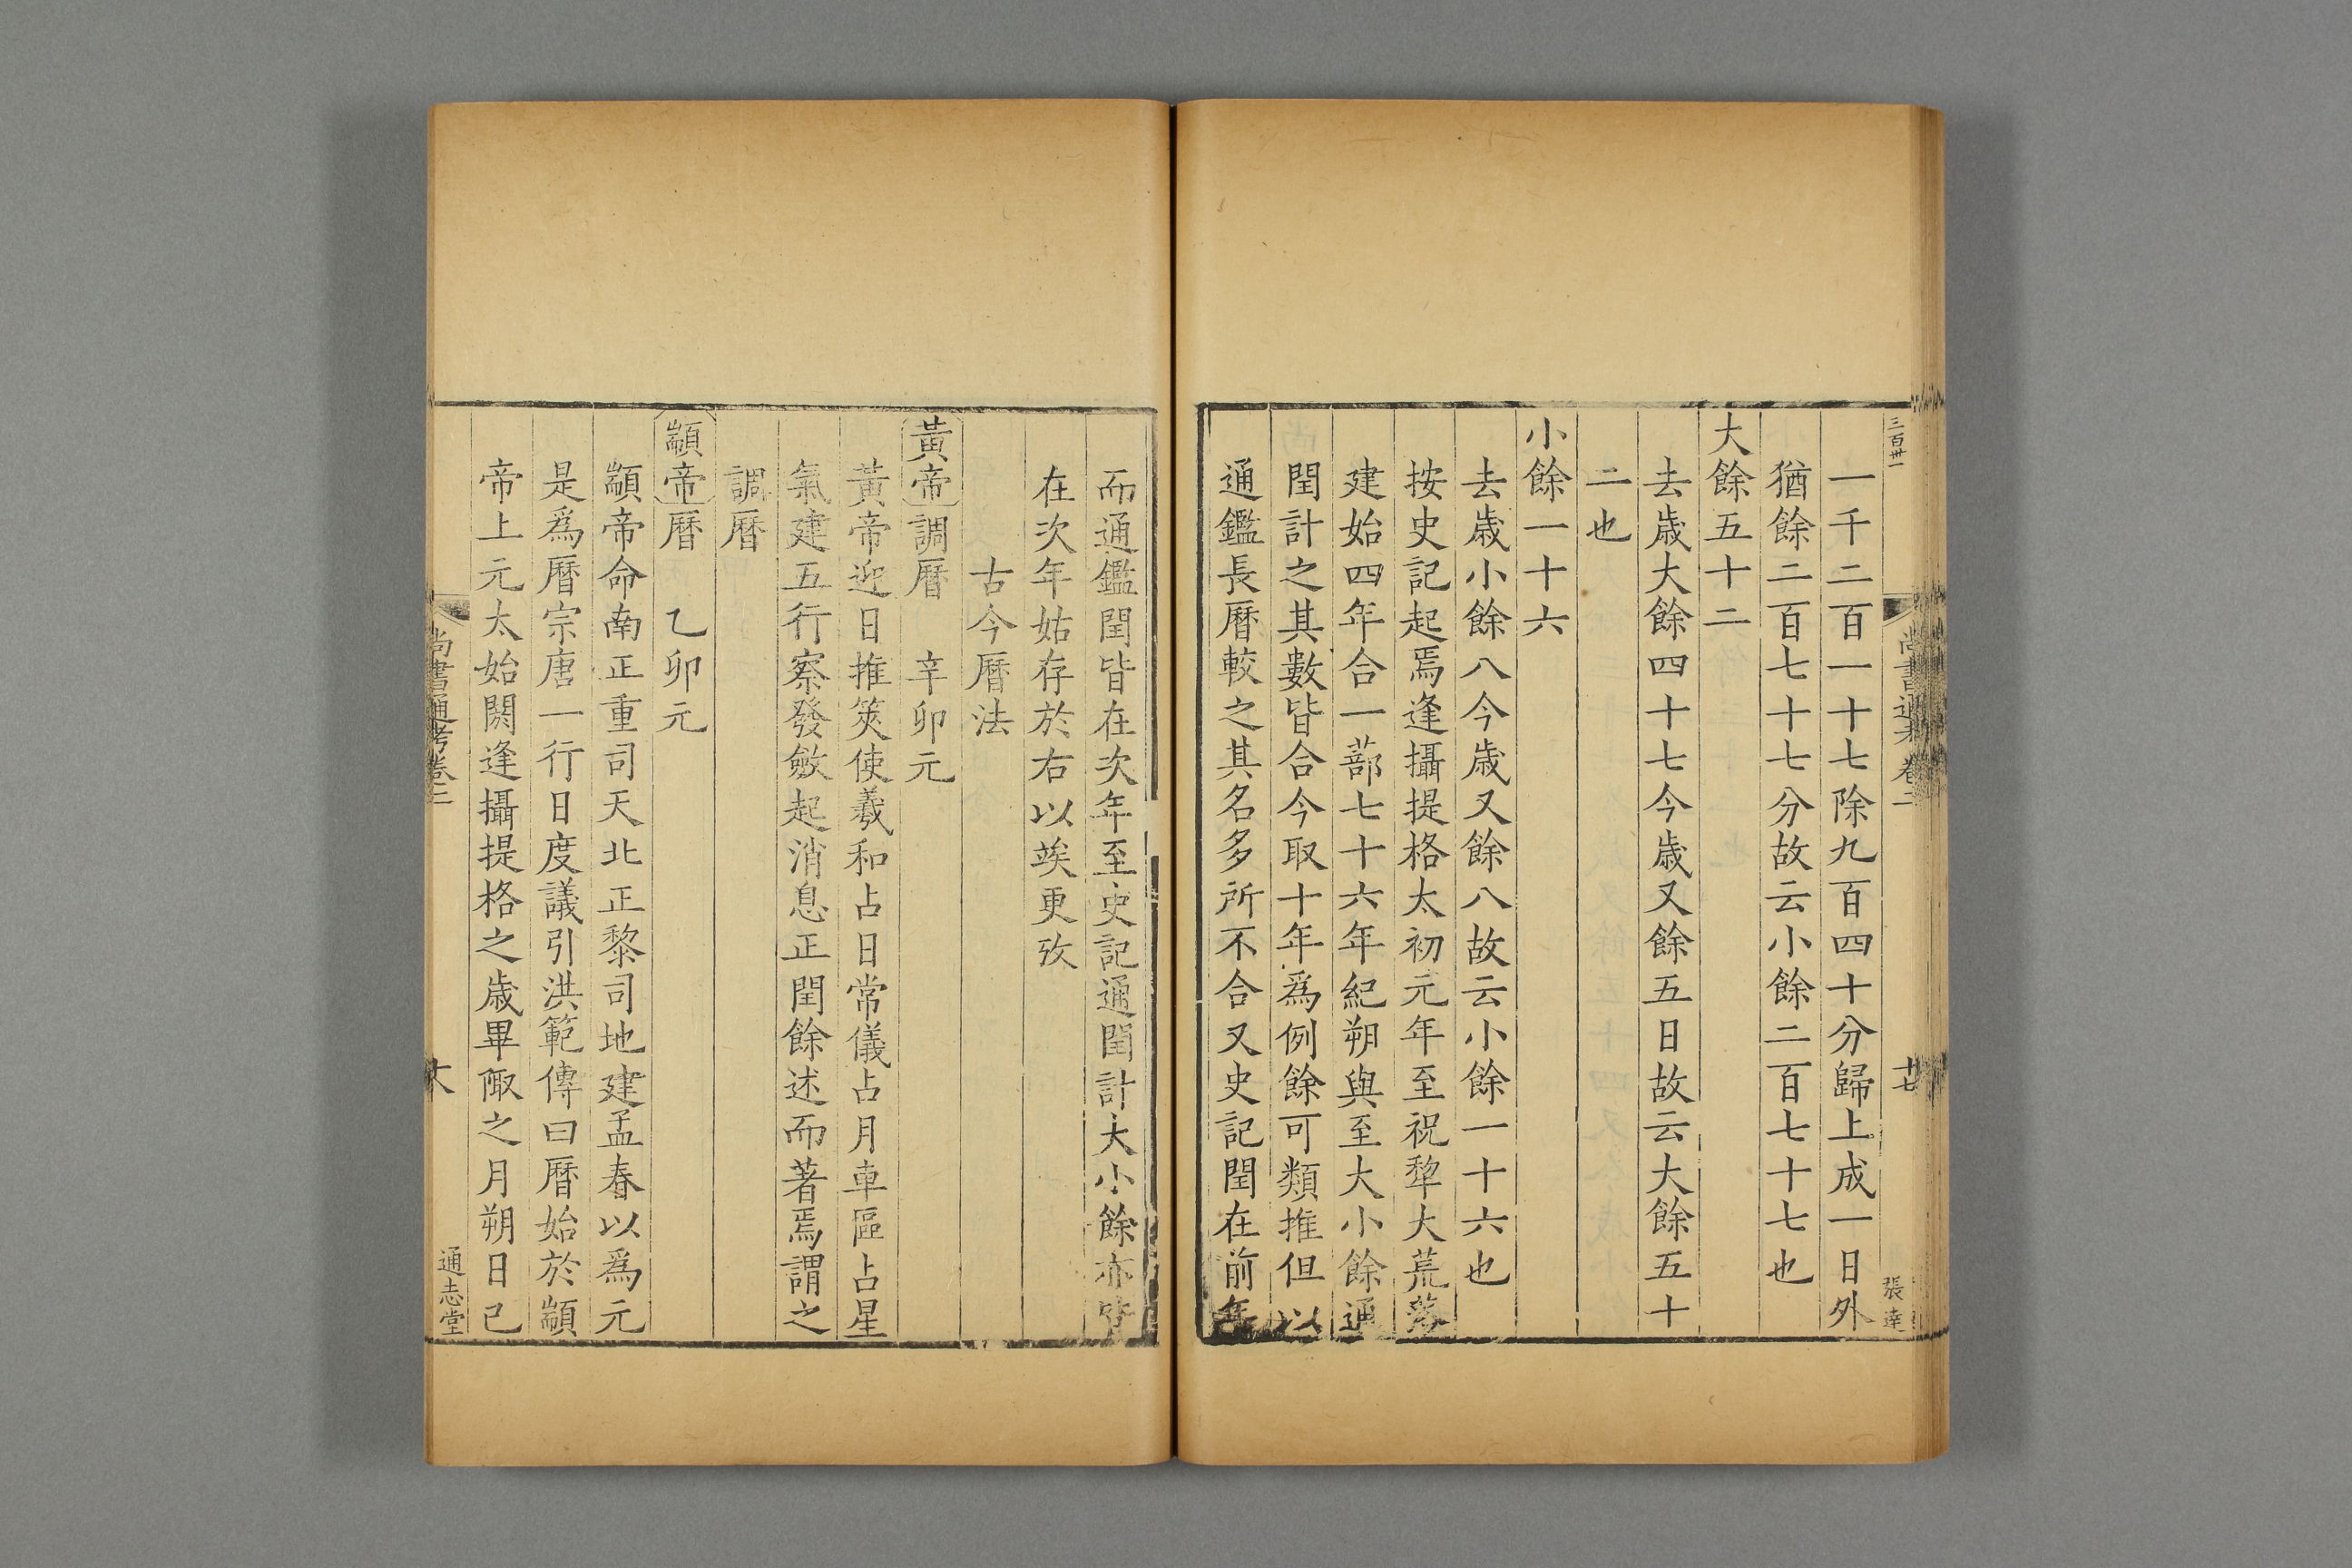 三百卅一
尚書通考卷二
十七
張達
一千二百一十七除九百四十分歸上成一日外
猶餘二百七十七分故云小餘二百七十七也
大餘五十二
去歲大餘四十七今歲又餘五日故云大餘五十
二也
小餘一十六
去歲小餘八今歲又餘八故云小餘一十六也
按史記起焉逢攝提格太初元年至祝犂大荒落
建始四年合一蔀七十六年紀朔與至大小餘通
閏計之其數皆合今取十年爲例餘可類推但以
通鑑長曆較之其名多所不合又史記閏在前年
而通鑑閏皆在次年至史記通閏計大小餘亦皆
在次年姑存於右以竢更攷
古今曆法
黃帝調曆 辛卯元
黃帝迎日推筴使羲和占日常儀占月車區占星
氣建五行察發斂起消息正閏餘述而著焉謂之
調曆
顓帝曆 乙卯元
顓帝命南正重司天北正黎司地建孟春以爲元
是爲曆宗唐一行日度議引洪範傳曰曆始於顓
帝上元太始閼逢攝提格之歲畢陬之月朔日己
尚書通考卷二
通志堂